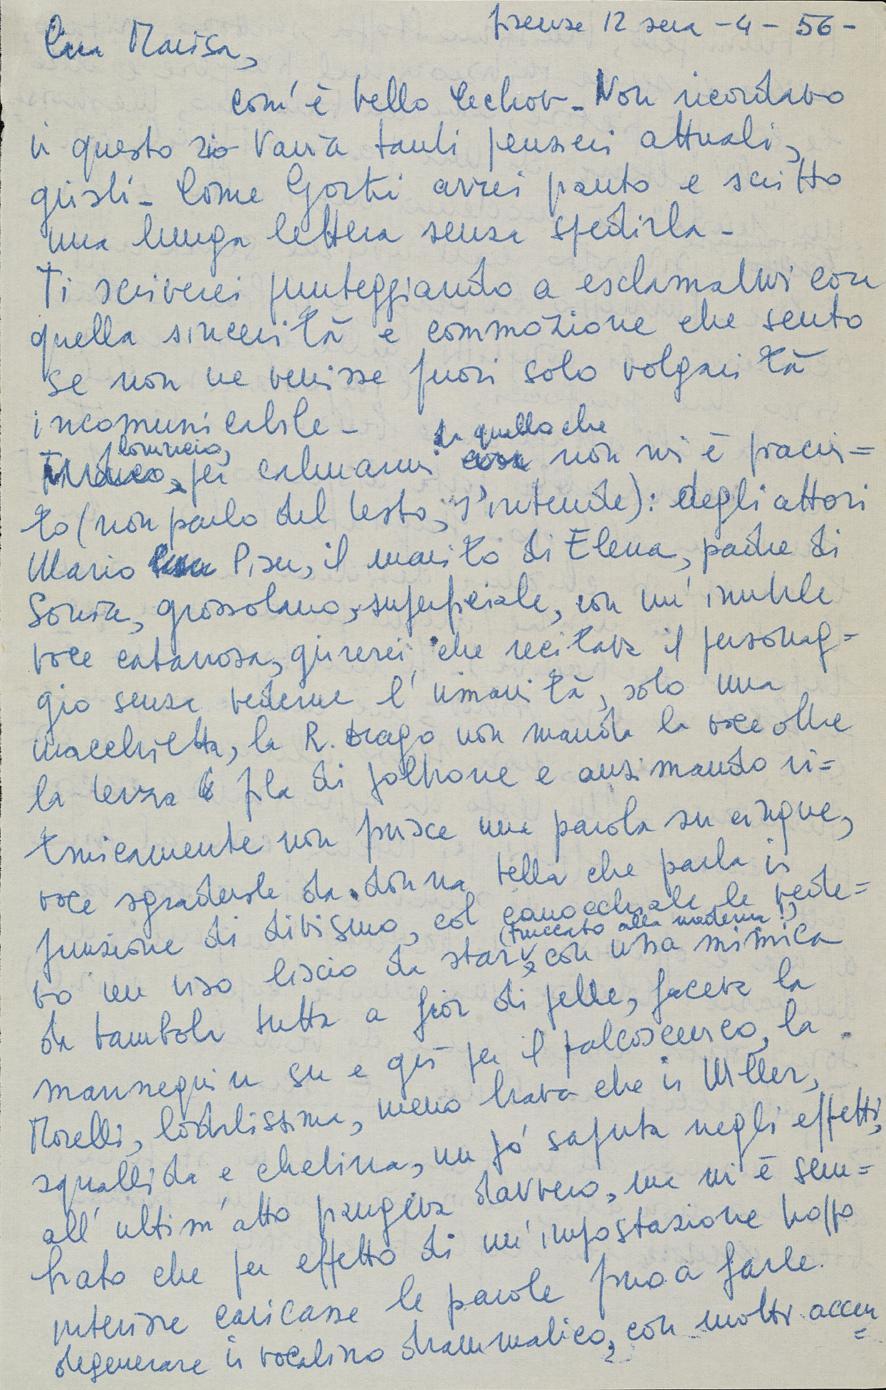 Firenze 12 sera - 4 - 56 -
Cara Marisa,
com'è bello Cechov - Non ricordavo
in questo zio Vania tanti pensieri attuali,
giusti - Come Gorki avrei pianto e scritto
una lunga lettera senza spedirla -
Ti scriverei punteggiando a esclamativi con
quella sincerità e commozione che sento
se non ne venisse fuori solo volgarità
incomunicabile -
Comincio, per calmarmi da quello che non mi è piaciu=
to (non parlo del testo, s'intende): degli attori
Mario Pisu, il marito di Elena, padre di
Sonia, grossolano, superficiale, con un'inutile
voce catarrosa, giurerei che recitava il personag=
gio senza vederne l'umanità, solo una
macchietta, la R. Drago non manda la voce oltre
la terza fila di poltrone e ansimando ri=
tmicamente non finisce una parola su cinque,
voce sgradevole da donna bella che parla in
funzione di divismo, col canocchiale le vede=
vo un viso liscio da star (truccato alla moderna!), con una mimica
da bambola tutta a fior di pelle, faceva la
mannequin su e giù per il palcoscenico, la
Morelli, lodatissima, meno brava che in Miller,
squallida e chelina, un po' saputa negli effetti,
all'ultim'atto piangeva davvero, ma mi è sem=
brato che per effetto di un'impostazione troppo
interiore caricasse le parole fino a farle
degenerare in vocalizzo drammatico, con molti accen=